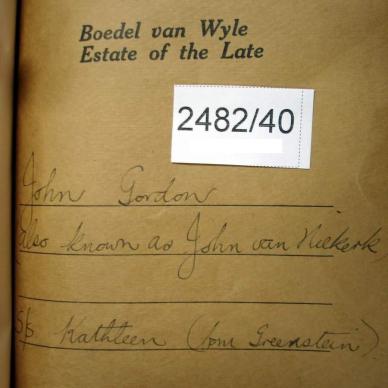 Boedel van Wyle
Estate of the Late
2482/40
John Gordon
also known as John van Niekerk
S/s Kathleen (born Greenstein)